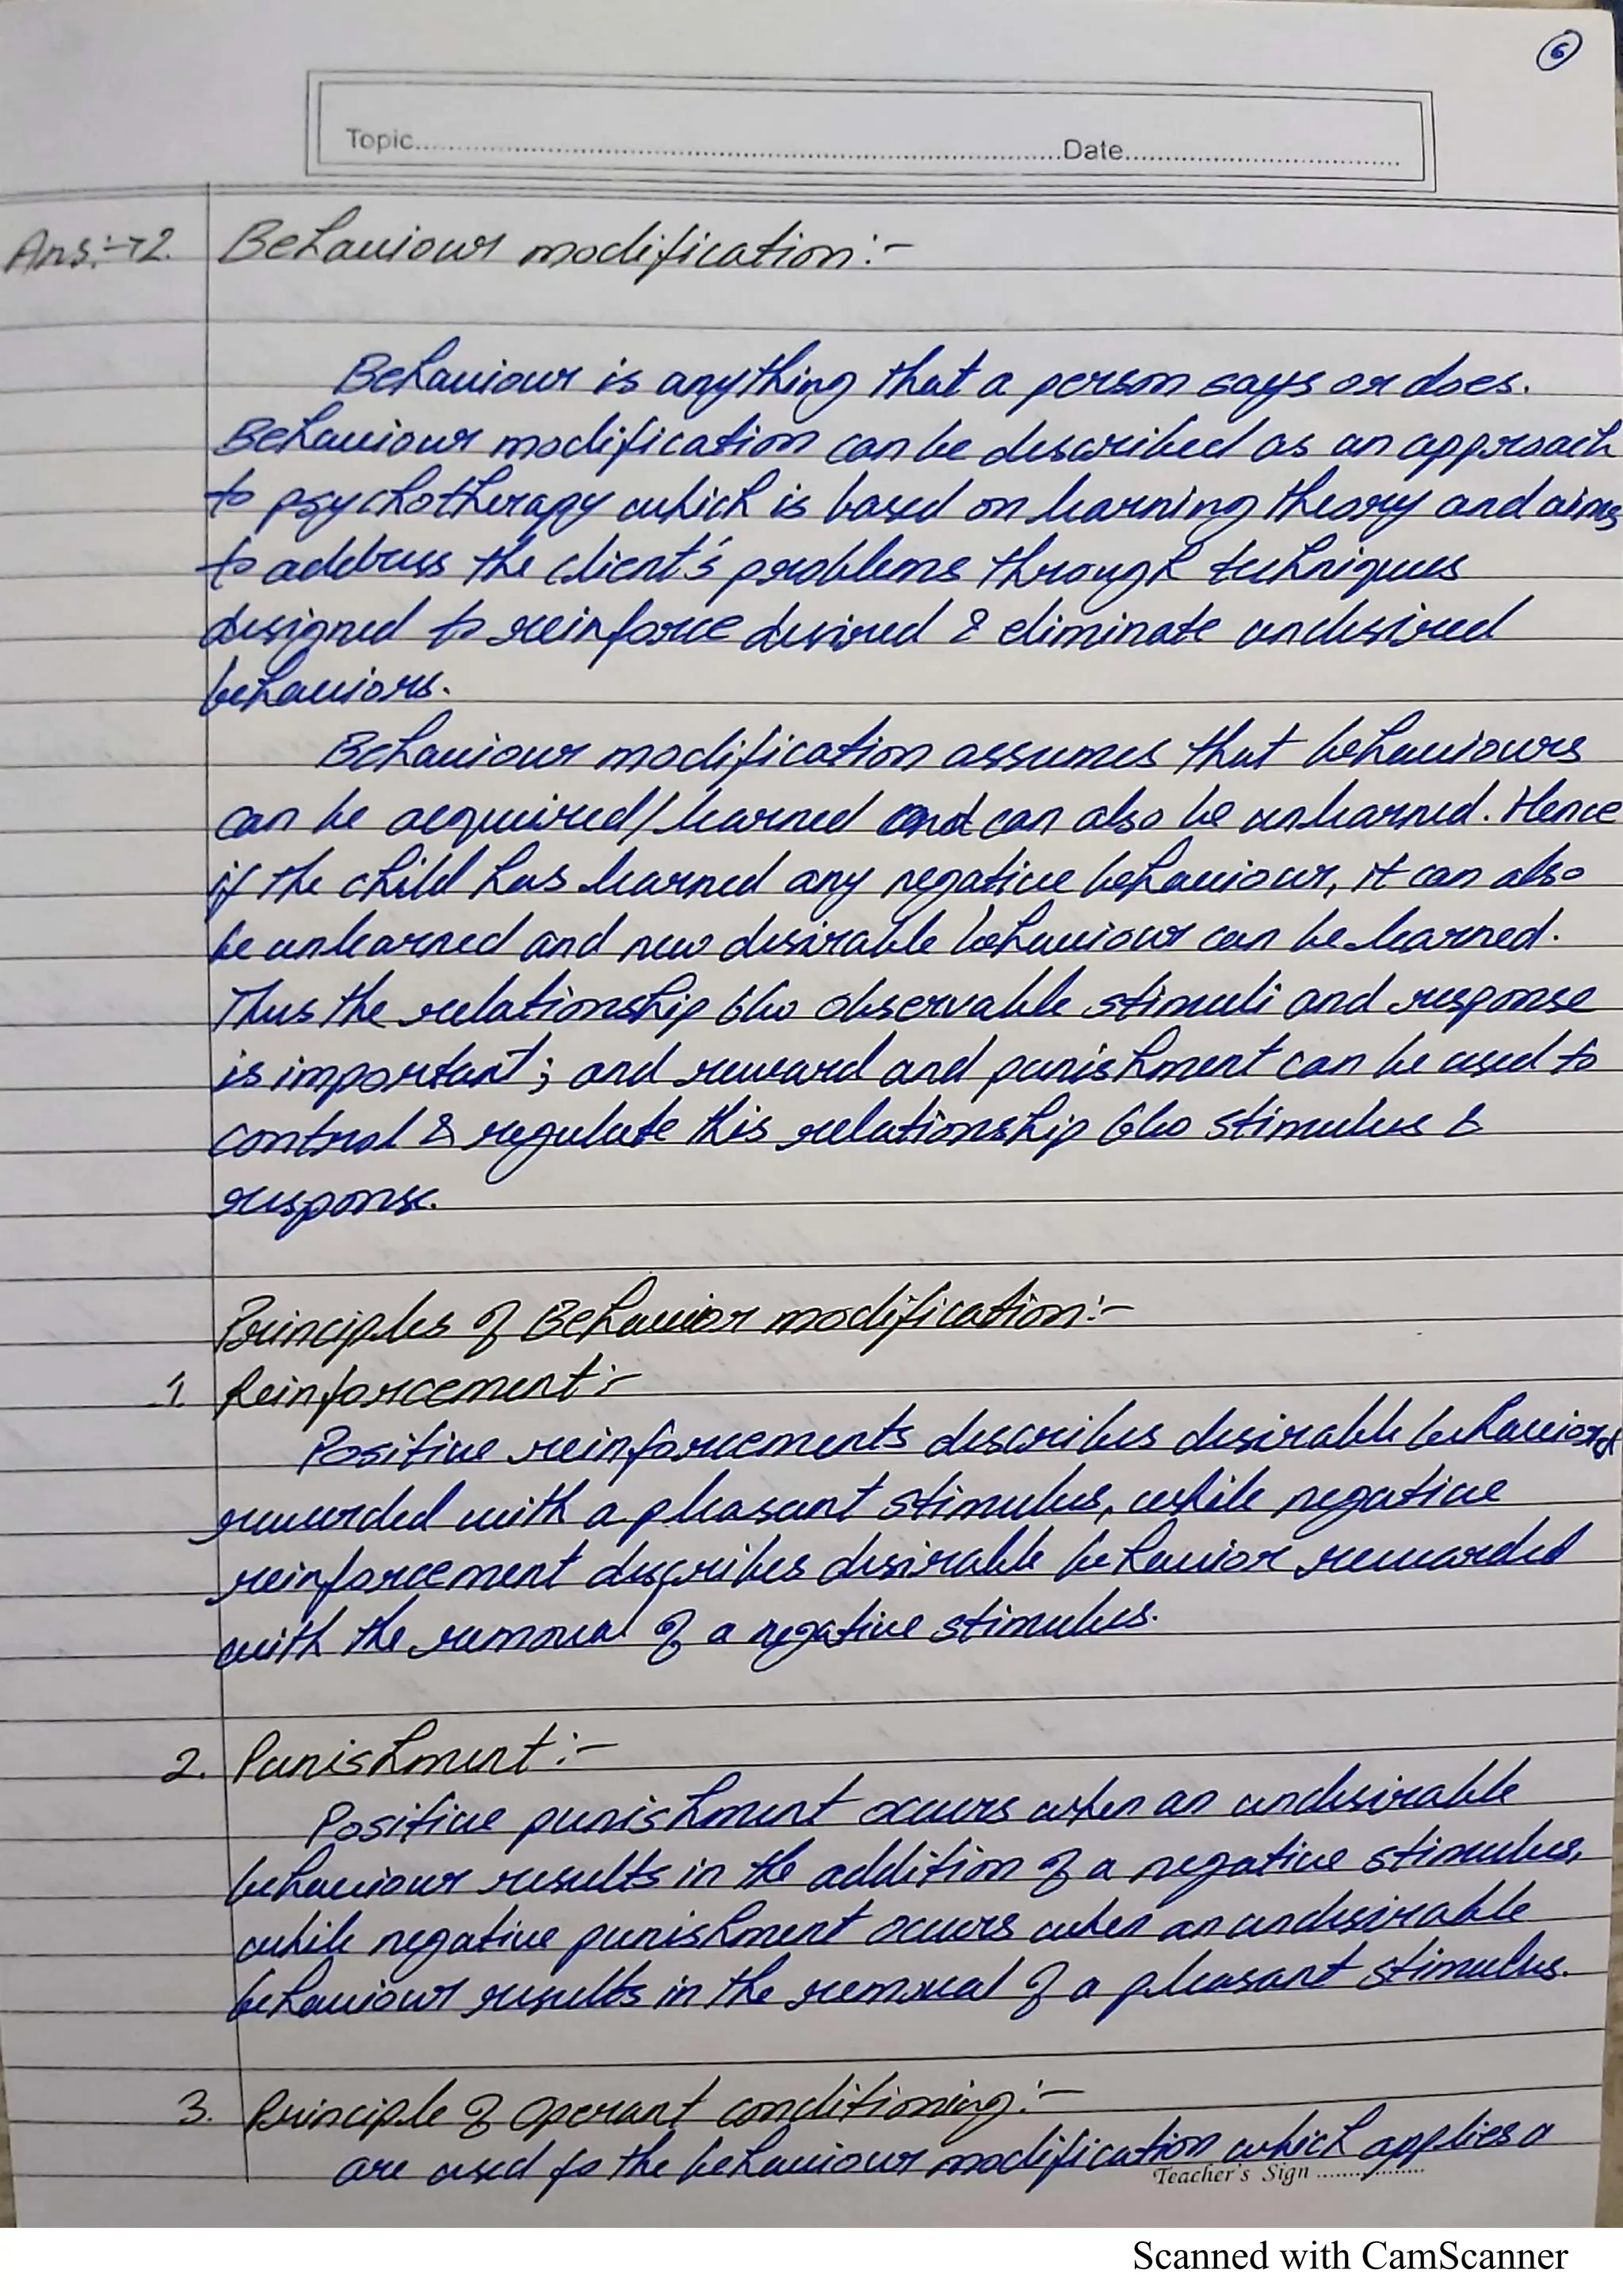 6
Topic..........Date..........
Ans:→2. Behaviour modification:-
Behaviour is anything that a person says or does.
Behaviour modification can be described as an approach
to psychotherapy which is based on learning theory and aims
to address the client's problems through techniques
designed to reinforce desired & eliminate undesired
behaviors.
Behaviour modification assumes that behaviours
can be acquired/learned and can also be unlearned. Hence
if the child has learned any negative behaviour, it can also
be unlearned and new desirable behaviour can be learned.
Thus the relationship b/w observable stimuli and response
is important; and reward and punishment can be used to
control & regulate this relationship b/w stimulus &
response.
Principles of Behavior modification:-
1. Reinforcement:-
Positive reinforcements describes desirable behaviors
rewarded with a pleasant stimulus, while negative
reinforcement describes desirable behavior rewarded
with the removal of a negative stimulus.
2. Punishment:-
Positive punishment occurs when an undesirable
behaviour results in the addition of a negative stimulus,
while negative punishment occurs when an undesirable
behaviour results in the removal of a pleasant stimulus.
3. Principle of Operant conditioning:-
are used fo the behaviour modification which applies a
Teacher's Sign ..................
Scanned with CamScanner